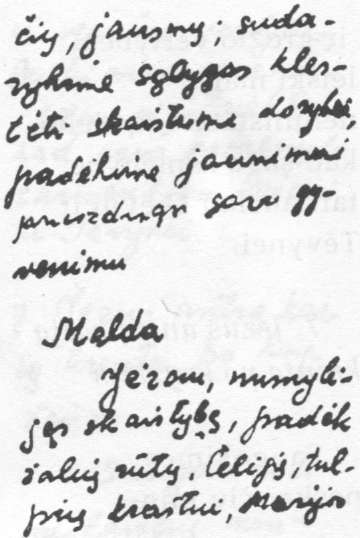 čių, jausmų; suda-
rykime sąlygas kles-
tėti skaistumo dorybei,
padėkime jaunimui
savo gy-
venimu
Malda
Jėzau, numylė-
jęs skaistybę, padėk
šalių rūtų, lelijų, tul-
pių kraštui, Marijos